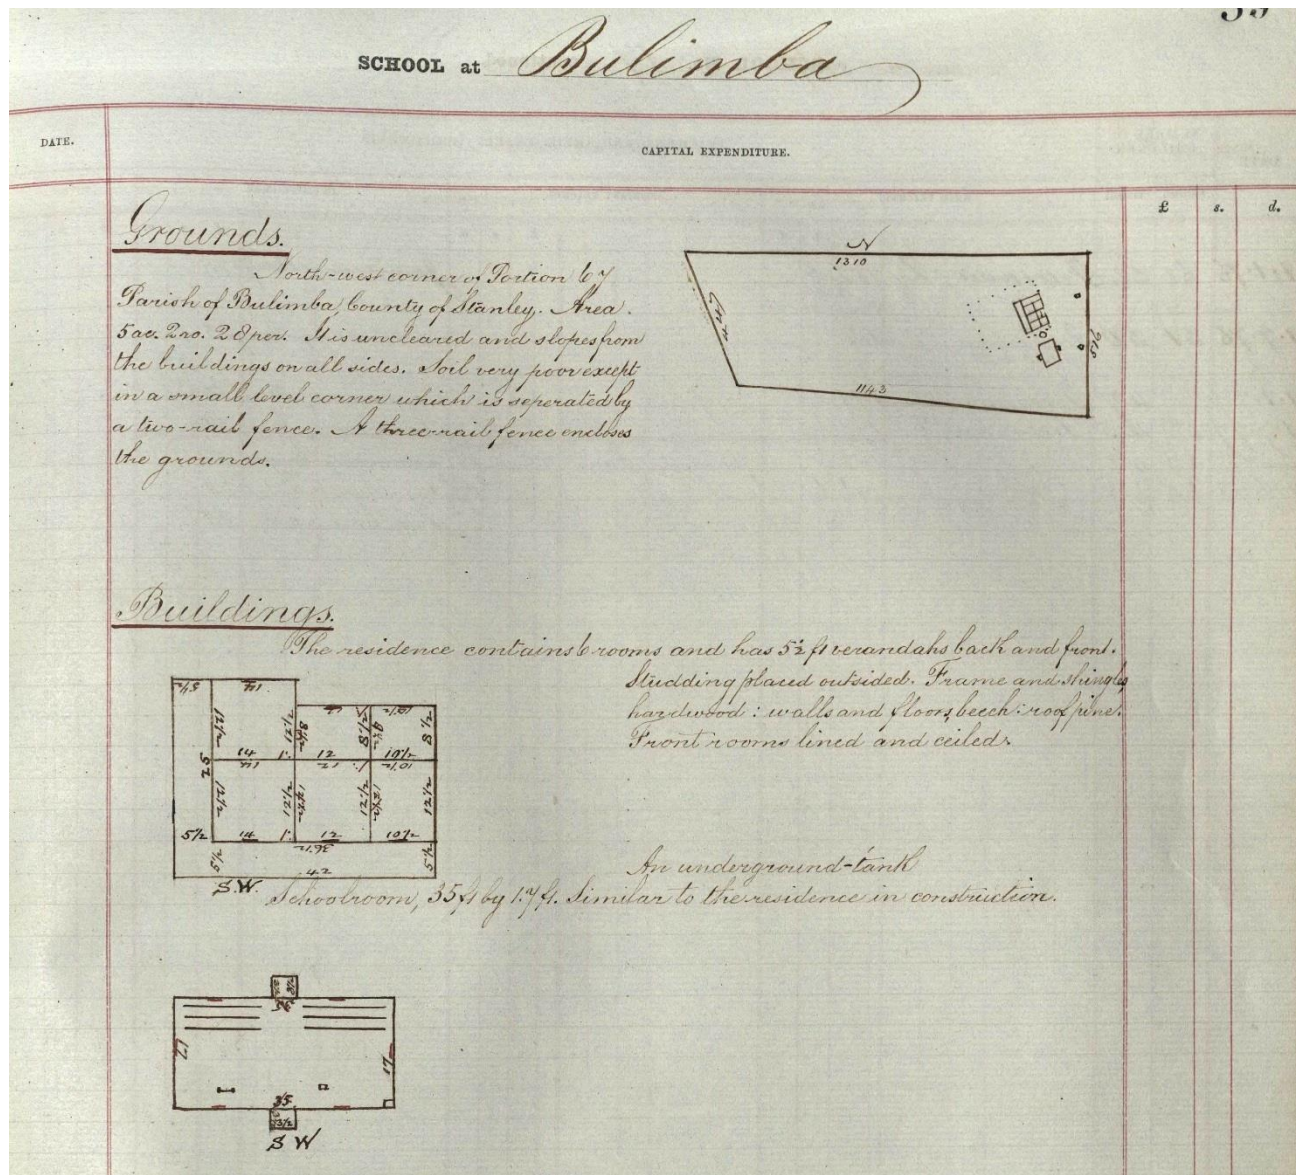 SCHOOL at Bulimba
DATE.
CAPITAL EXPENDITURE.
£ s. d.
Grounds.
North-west corner of Portion 67
Parish of Bulimba, County of Stanley. Area.
5 ac. 2 ro. 28 per. It is uncleared and slopes from
the buildings on all sides. Soil very poor except
in a small level corner which is seperated by
a two-rail fence. A three-rail fence encloses
the grounds.
N
1310
1143
Buildings.
The residence contains 6 rooms and has 5½ ft verandahs back and front.
Studding placed outsided. Frame and shingles
hardwood: walls and floors, beech: roof pine.
Front rooms lined and ceiled.
5½ 14 12 10½
12½ 12½ 8½ 8½ 8½ 8½
14 12 10½
14 12 10½
25
12½ 12½ 12½ 12½ 12½ 12½
5½ 14 12 10½
5½ 36½ 5½
42
S.W.
An underground-tank
Schoolroom, 35 ft by 17 ft. Similar to the residence in construction.
17 17
35
S W